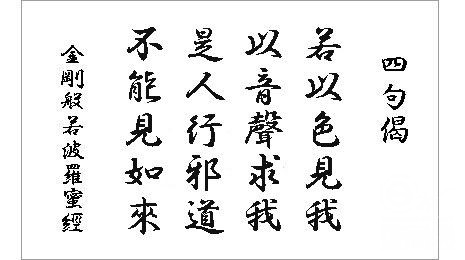 四句偈
若以色見我
以音聲求我
是人行邪道
不能見如來
金剛般若波羅蜜經